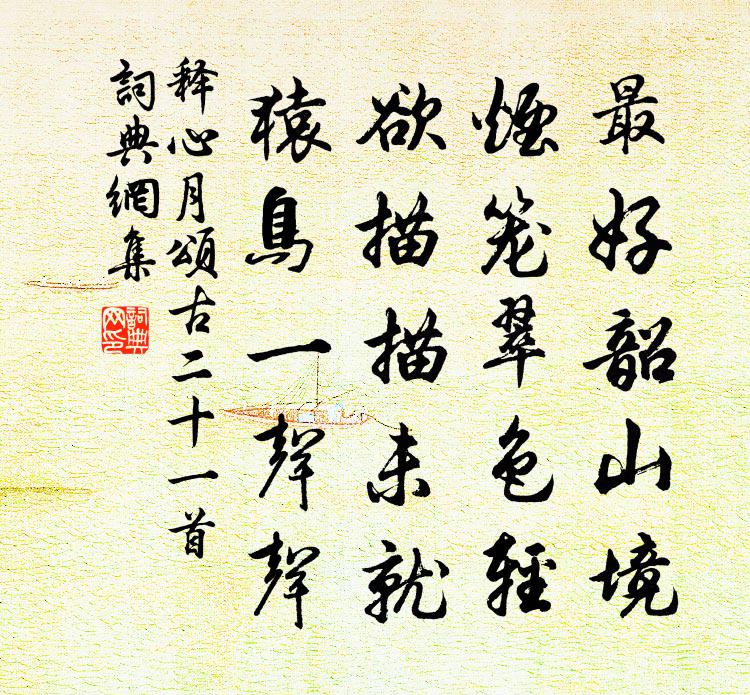 最好韶山境
煙笼翠色輕
欲描描未就
猿鳥一聲聲
释心月頌古二十一首
詞典網集
詞典网印